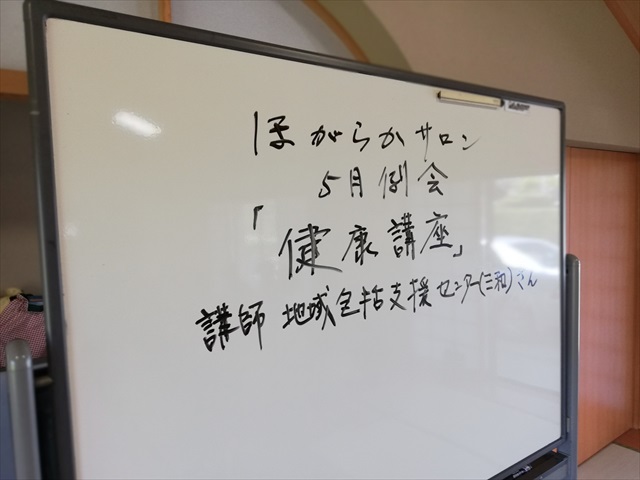 ほがらかサロン
5月例会
「健康講座」
講師 地域包括支援センター(三和)さん